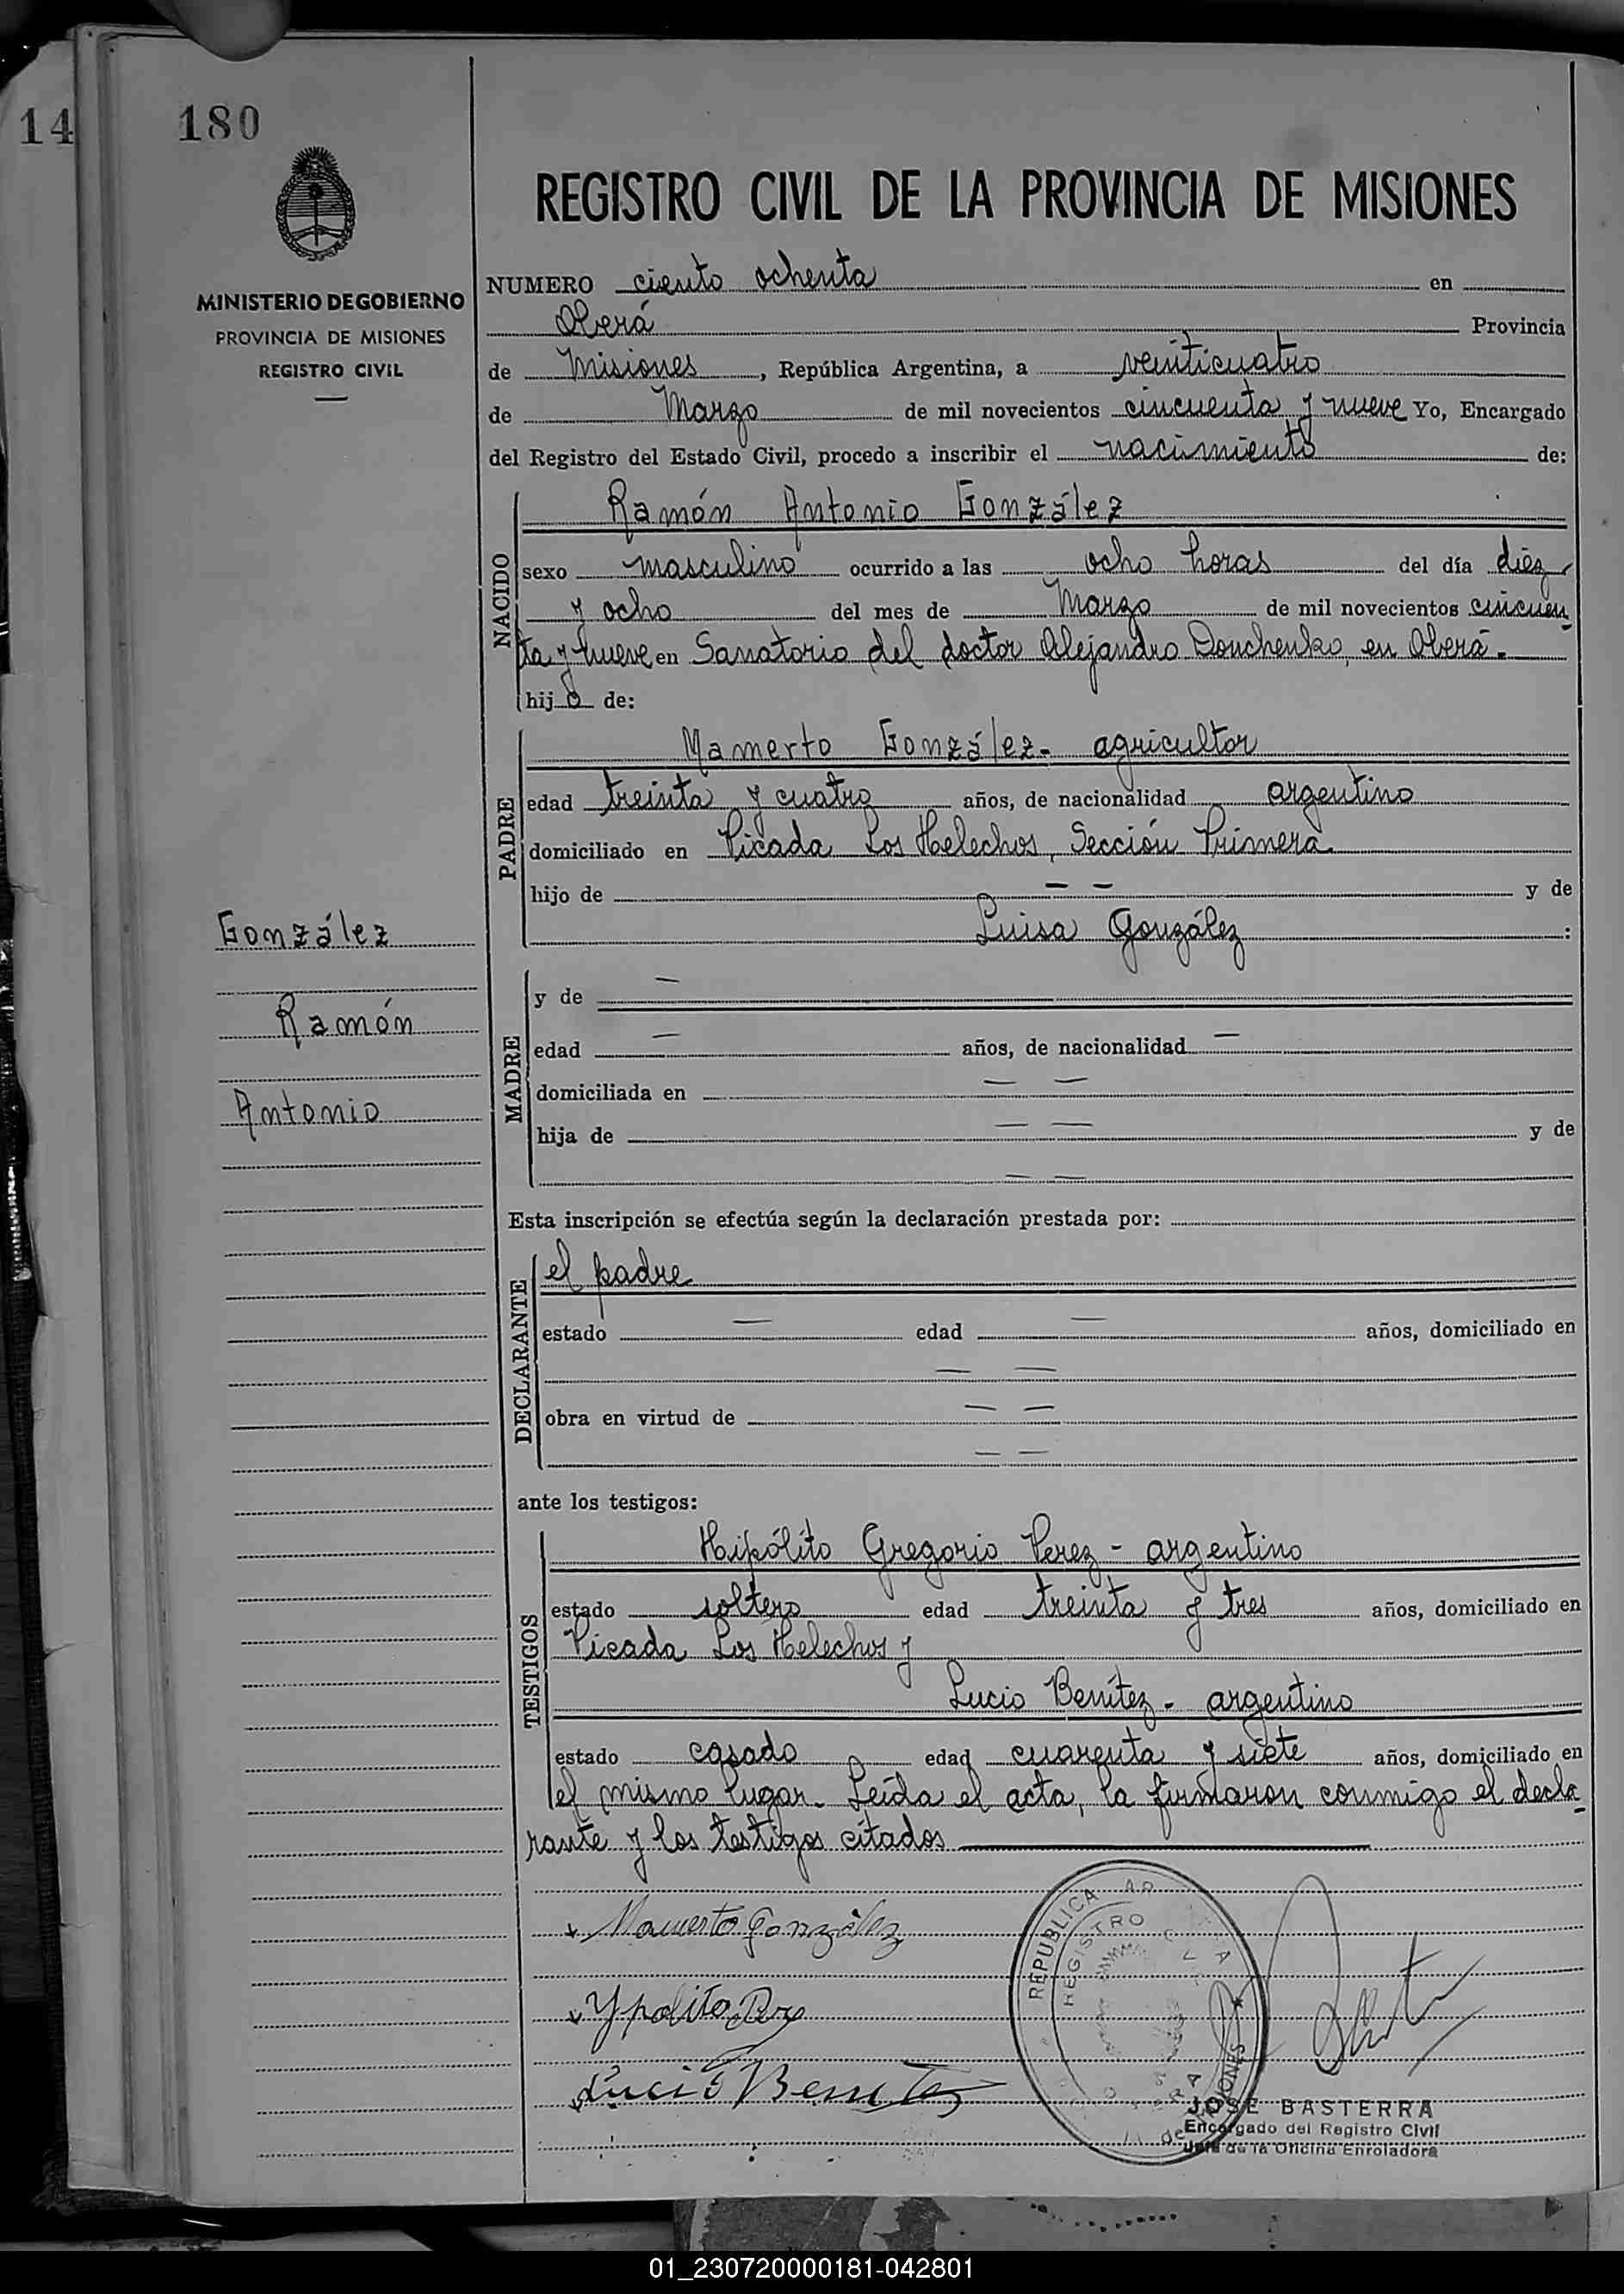 14
180
REGISTRO CIVIL DE LA PROVINCIA DE MISIONES
MINISTERIO DE GOBIERNO
PROVINCIA DE MISIONES
REGISTRO CIVIL
NUMERO ciento ochenta en
Oberá Provincia
de Misiones, República Argentina, a veinticuatro
de Marzo de mil novecientos cincuenta y nueve Yo, Encargado
del Registro del Estado Civil, procedo a inscribir el nacimiento de:
NACIDO
Ramón Antonio González
sexo masculino ocurrido a las ocho horas del día diez
y ocho del mes de Marzo de mil novecientos cincuen
ta y nueve en Sanatorio del doctor Alejandro Douchenko, en Oberá.
hijo de:
PADRE
Mamerto González- agricultor
edad treinta y cuatro años, de nacionalidad argentino
domiciliado en Picada Los Helechos, Sección Primera
hijo de — — y de
Luisa González :
González
Ramón
Antonio
MADRE
y de —
edad — años, de nacionalidad —
domiciliada en — —
hija de — — y de
— —
Esta inscripción se efectúa según la declaración prestada por:
DECLARANTE
el padre
estado — edad — años, domiciliado en
— —
obra en virtud de — —
— —
ante los testigos:
TESTIGOS
Hipólito Gregorio Perez - argentino
estado soltero edad treinta y tres años, domiciliado en
Picada Los Helechos y
Lucio Benítez - argentino
estado casado edad cuarenta y siete años, domiciliado en
el mismo lugar. Leída el acta, la firmaron conmigo el decla
rante y los testigos citados
Mamerto González
Ypolito Perez
Lucio Benitez
REPUBLICA AR
REGISTRO CIVI
MISIONES
JOSE BASTERRA
Encargado del Registro Civil
Jefe de la Oficina Enroladora
01_230720000181-042801